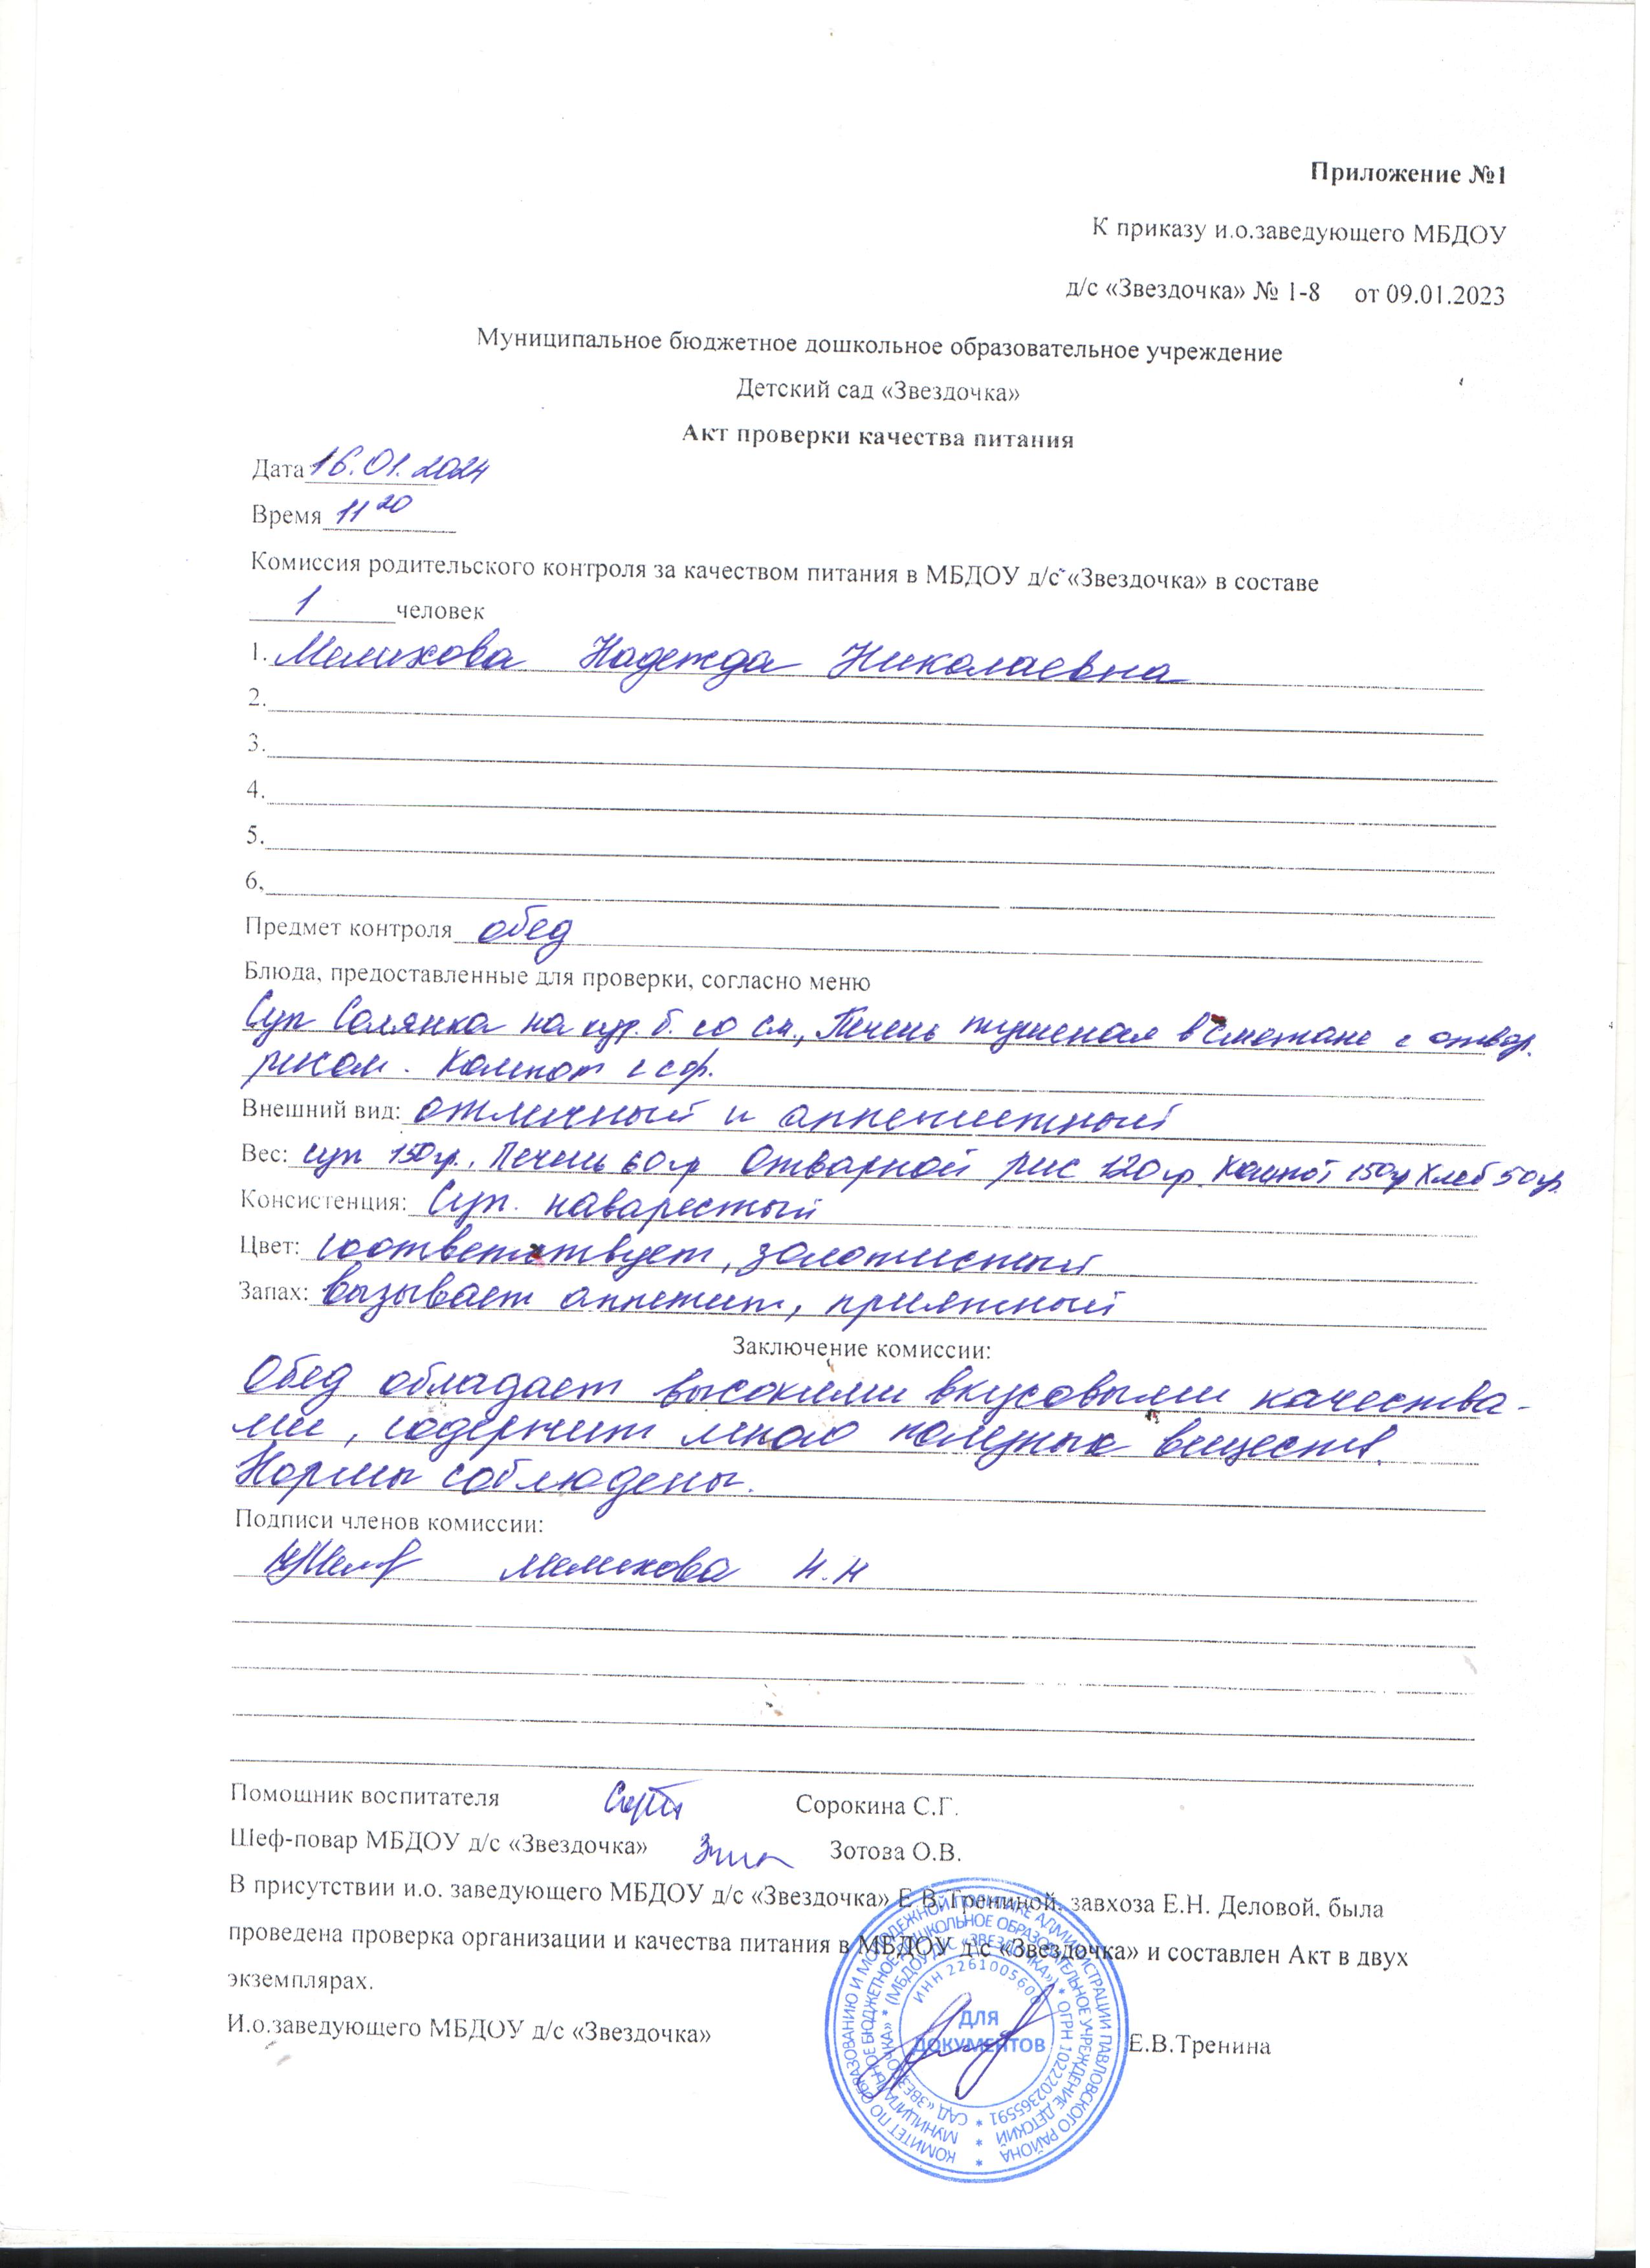 Приложение №1
К приказу и.о.заведующего МБДОУ
д/с «Звездочка» № 1-8 от 09.01.2023
Муниципальное бюджетное дошкольное образовательное учреждение
Детский сад «Звездочка»
Акт проверки качества питания
Дата 16.01.2024
Время 11 20
Комиссия родительского контроля за качеством питания в МБДОУ д/с «Звездочка» в составе
1 человек
1. Мелихова Надежда Николаевна
2.
3.
4.
5.
6.
Предмет контроля обед
Блюда, предоставленные для проверки, согласно меню
Суп Солянка на кур. б. со см., Печень тушеная в сметане с отвар.
рисом. Компот с сф.
Внешний вид: отличный и аппетитный
Вес: суп 150гр., Печень 60гр Отварной рис 120гр. Компот 150гр Хлеб 50гр.
Консистенция: Суп. наваристый
Цвет: соответствует, золотистый
Запах: вызывает аппетит, приятный
Заключение комиссии:
Обед обладает высокими вкусовыми качества-
ми, содержит много полезных веществ.
Нормы соблюдены.
Подписи членов комиссии:
Мелихова Н.Н
Помощник воспитателя Сорокина С.Г.
Шеф-повар МБДОУ д/с «Звездочка» Зотова О.В.
В присутствии и.о. заведующего МБДОУ д/с «Звездочка» Е.В.Трениной, завхоза Е.Н. Деловой, была
проведена проверка организации и качества питания в МБДОУ д/с «Звездочка» и составлен Акт в двух
экземплярах.
И.о.заведующего МБДОУ д/с «Звездочка» Е.В.Тренина
КОМИТЕТ ПО ОБРАЗОВАНИЮ И МОЛОДЕЖНОЙ ПОЛИТИКЕ АДМИНИСТРАЦИИ ПАВЛОВСКОГО РАЙОНА *
МУНИЦИПАЛЬНОЕ БЮДЖЕТНОЕ ДОШКОЛЬНОЕ ОБРАЗОВАТЕЛЬНОЕ УЧРЕЖДЕНИЕ ДЕТСКИЙ *
САД «ЗВЕЗДОЧКА» * (МБДОУ Д/С «ЗВЕЗДОЧКА») * ОГРН 1022202365591 *
ИНН 2261005600
ДЛЯ
ДОКУМЕНТОВ